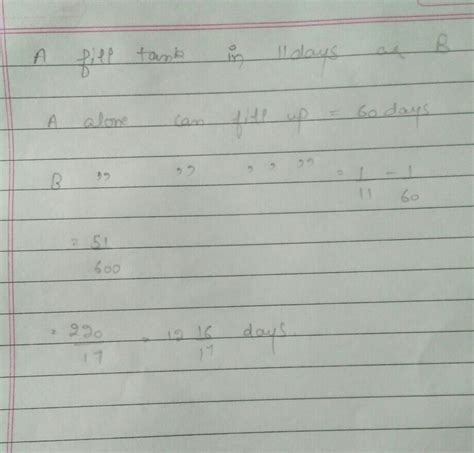 A fill tank in 11 days as B
A alone can fill up = 60 days
B " " " " = 1/11 - 1/60
= 51/600
= 220/17 = 12 16/17 days.